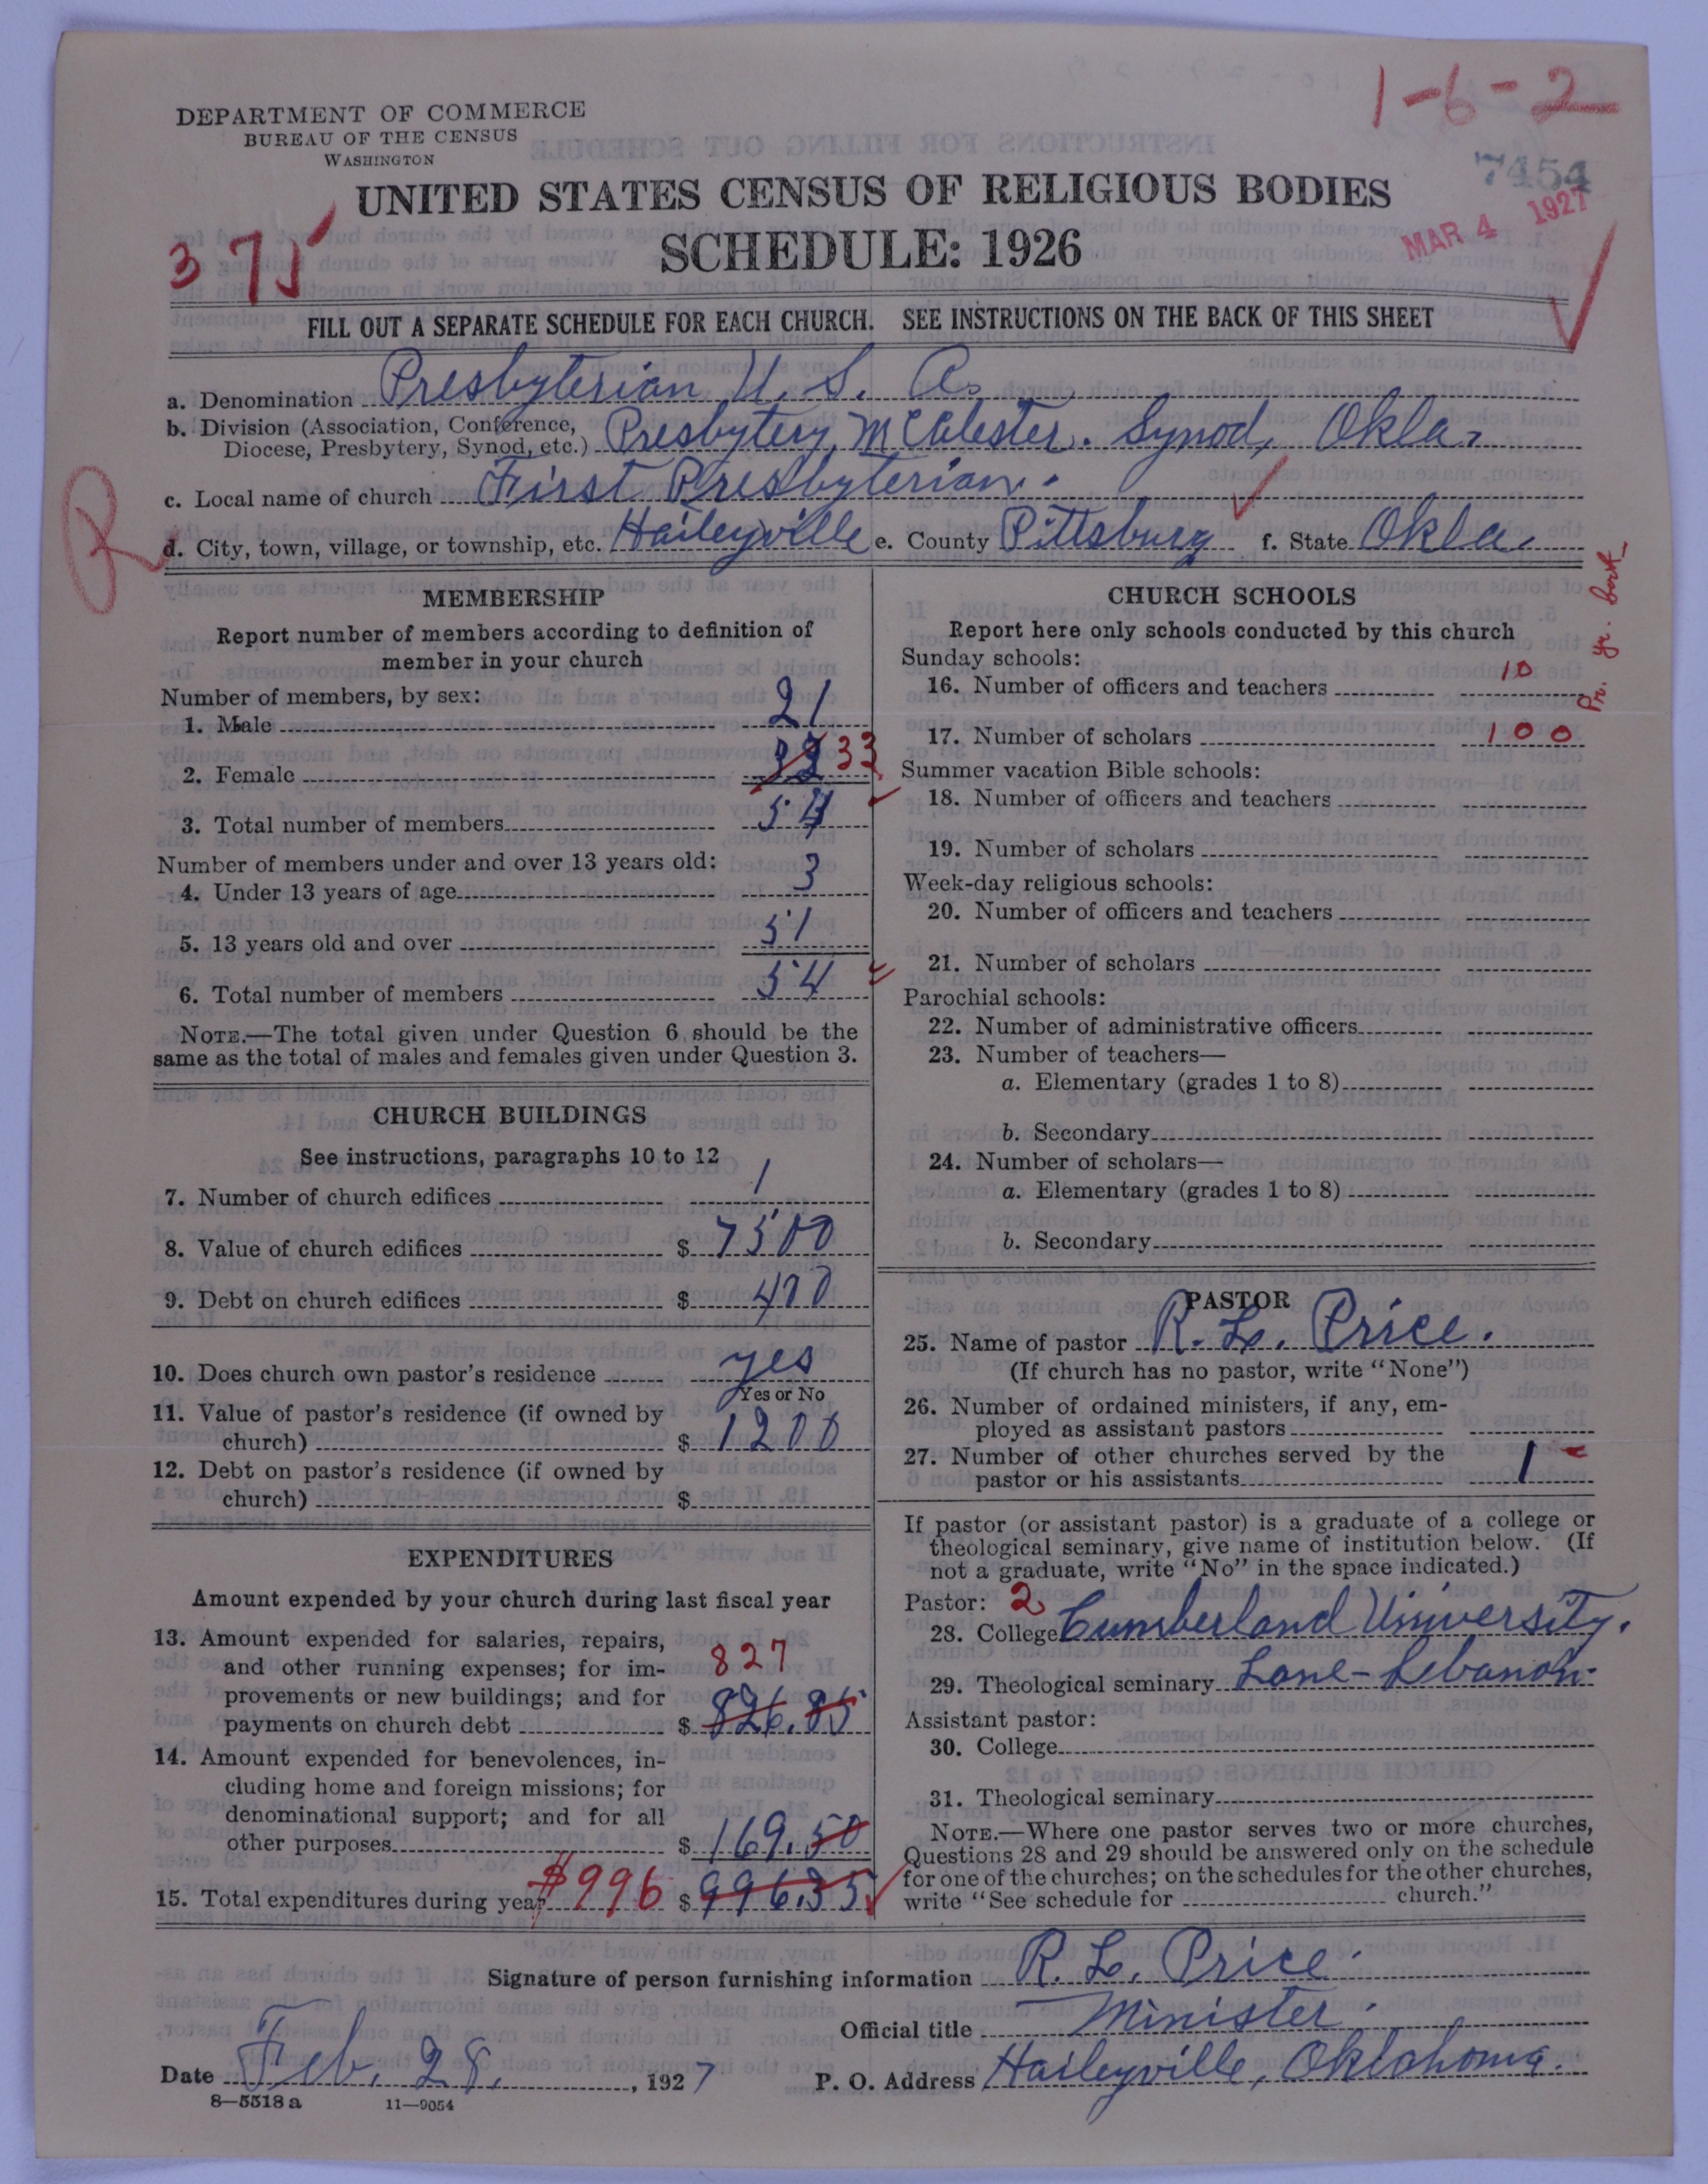 1-6-2
DEPARTMENT OF COMMERCE
BUREAU OF THE CENSUS
WASHINGTON
7454
MAR 4 1927
UNITED STATES CENSUS OF RELIGIOUS BODIES
SCHEDULE: 1926
375
FILL OUT A SEPARATE SCHEDULE FOR EACH CHURCH. SEE INSTRUCTIONS ON THE BACK OF THIS SHEET
a. Denomination Presbyterian U. S. A.
b. Division (Association, Conference,
Diocese, Presbytery, Synod, etc.) Presbytery, McAlester. Synod, Okla.
c. Local name of church First Presbyterian.
R
d. City, town, village, or township, etc. Haileyville e. County Pittsburg f. State Okla.
MEMBERSHIP
Report number of members according to definition of
member in your church
Number of members, by sex:
1. Male 21
2. Female 33
3. Total number of members 54
Number of members under and over 13 years old:
4. Under 13 years of age 3
5. 13 years old and over 51
6. Total number of members 54
NOTE.—The total given under Question 6 should be the
same as the total of males and females given under Question 3.
CHURCH BUILDINGS
See instructions, paragraphs 10 to 12
7. Number of church edifices 1
8. Value of church edifices $ 7500
9. Debt on church edifices $ 400
10. Does church own pastor's residence yes
Yes or No
11. Value of pastor's residence (if owned by
church) $ 1200
12. Debt on pastor's residence (if owned by
church) $
EXPENDITURES
Amount expended by your church during last fiscal year
13. Amount expended for salaries, repairs,
and other running expenses; for im- 827
provements or new buildings; and for
payments on church debt $ 826.85
14. Amount expended for benevolences, in-
cluding home and foreign missions; for
denominational support; and for all
other purposes $ 169.50
15. Total expenditures during year $996 $ 996.35
CHURCH SCHOOLS
Report here only schools conducted by this church
Sunday schools:
16. Number of officers and teachers 10
17. Number of scholars 100
Pr. yr. book
Summer vacation Bible schools:
18. Number of officers and teachers
19. Number of scholars
Week-day religious schools:
20. Number of officers and teachers
21. Number of scholars
Parochial schools:
22. Number of administrative officers
23. Number of teachers—
a. Elementary (grades 1 to 8)
b. Secondary
24. Number of scholars—
a. Elementary (grades 1 to 8)
b. Secondary
PASTOR
25. Name of pastor R. L. Price.
(If church has no pastor, write "None")
26. Number of ordained ministers, if any, em-
ployed as assistant pastors
27. Number of other churches served by the
pastor or his assistants 1
If pastor (or assistant pastor) is a graduate of a college or
theological seminary, give name of institution below. (If
not a graduate, write "No" in the space indicated.)
Pastor: 2
28. College Cumberland University.
29. Theological seminary Lane-Lebanon.
Assistant pastor:
30. College
31. Theological seminary
NOTE.—Where one pastor serves two or more churches,
Questions 28 and 29 should be answered only on the schedule
for one of the churches; on the schedules for the other churches,
write "See schedule for church."
Signature of person furnishing information R. L. Price.
Official title Minister.
Date Feb. 28, 1927 P. O. Address Haileyville, Oklahoma.
8—5518 a 11—9054